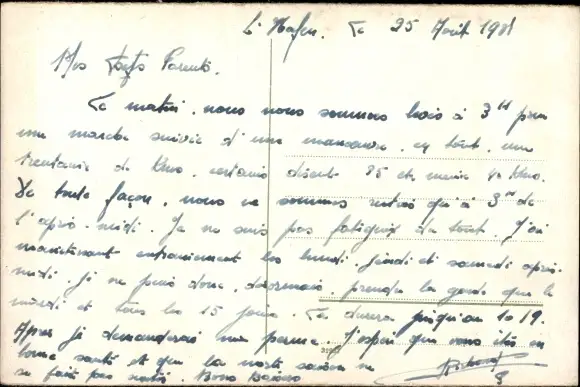 L'Hafen. Le 25 Août 19
Mes Chers Parents.
Ce matin, nous nous sommes levés à 3 H pour
une marche suivie d'une manœuvre, en tout, une
trentaine de Kms, certains disent 35 et même 40 Kms.
De toute façon, nous ne sommes rentrés qu'à 3 H de
l'après-midi. Je ne suis pas fatigué du tout. J'ai
maintenant entrainement les lundi, jeudi et samedi après-
midi. Je ne puis donc, désormais, prendre la garde que le
mardi et tous les 15 jours. Ce durera jusqu'au 10/9.
Après je demanderai une perme. J'espère que vous êtes en
bonne santé et que la
se fait pas sentir. Bons Baisers
Richard